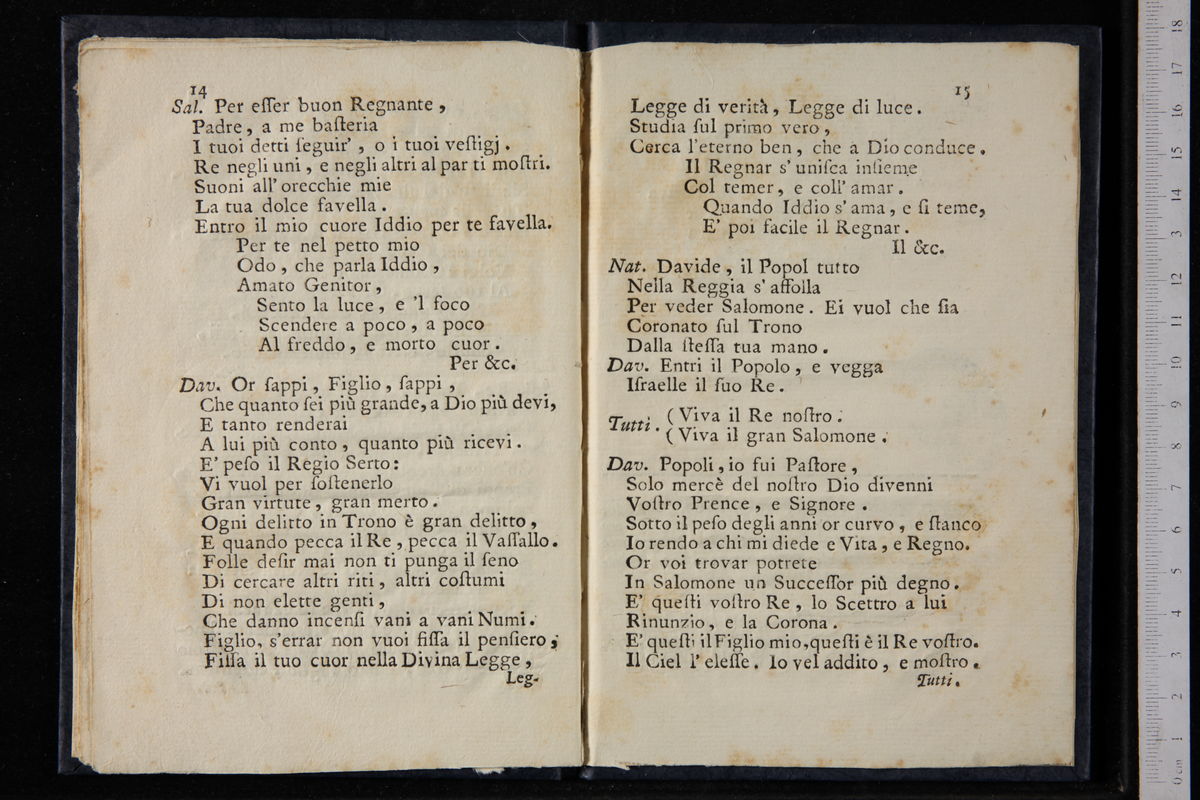 14
Sal. Per eſſer buon Regnante ,
Padre , a me baſteria
I tuoi detti ſeguir' , o i tuoi veſtigj .
Re negli uni , e negli altri al par ti moſtri.
Suoni all' orecchie mie
La tua dolce favella .
Entro il mio cuore Iddio per te favella.
Per te nel petto mio
Odo , che parla Iddio ,
Amato Genitor ,
Sento la luce , e 'l foco
Scendere a poco , a poco
Al freddo , e morto cuor .
Per &c.
Dav. Or ſappi , Figlio , ſappi ,
Che quanto ſei più grande, a Dio più devi,
E tanto renderai
A lui più conto , quanto più ricevi .
E' peſo il Regio Serto :
Vi vuol per ſoſtenerlo
Gran virtute , gran merto .
Ogni delitto in Trono è gran delitto ,
E quando pecca il Re , pecca il Vaſſallo .
Folle deſir mai non ti punga il ſeno
Di cercare altri riti , altri coſtumi
Di non elette genti ,
Che danno incenſi vani a vani Numi .
Figlio, s'errar non vuoi fiſſa il penſiero ;
Fiſſa il tuo cuor nella Divina Legge ,
Leg-
15
Legge di verità , Legge di luce .
Studia ſul primo vero ,
Cerca l'eterno ben , che a Dio conduce .
Il Regnar s' uniſca inſieme
Col temer , e coll' amar .
Quando Iddio s' ama , e ſi teme,
E' poi facile il Regnar .
Il &c.
Nat. Davide , il Popol tutto
Nella Reggia s' affolla
Per veder Salomone . Ei vuol che ſia
Coronato ſul Trono
Dalla ſteſſa tua mano .
Dav. Entri il Popolo , e vegga
Iſraelle il ſuo Re .
Tutti . ( Viva il Re noſtro .
( Viva il gran Salomone .
Dav. Popoli , io fui Paſtore ,
Solo mercè del noſtro Dio divenni
Voſtro Prence , e Signore .
Sotto il peſo degli anni or curvo , e ſtanco
Io rendo a chi mi diede e Vita , e Regno.
Or voi trovar potrete
In Salomone un Succeſſor più degno .
E' queſti voſtro Re , lo Scettro a lui
Rinunzio , e la Corona .
E' queſti il Figlio mio, queſti è il Re voſtro.
Il Ciel l' eleſſe . Io vel addito , e moſtro .
Tutti .
0 cm 1 2 3 4 5 6 7 8 9 10 11 12 13 14 15 16 17 18